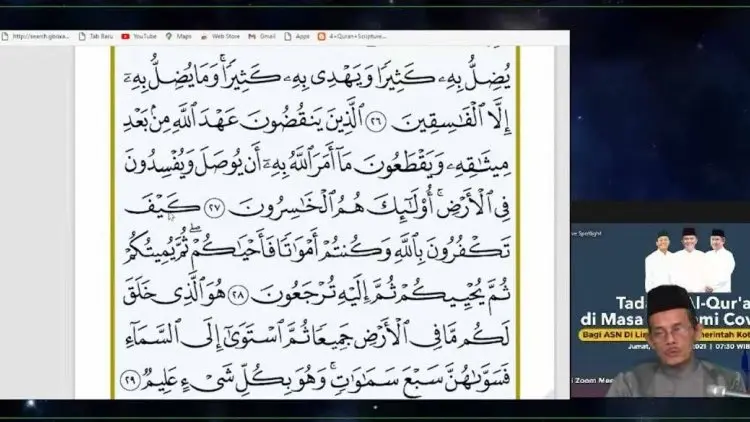 http://search.gboxa...
Tab Baru
YouTube
Maps
Web Store
Gmail
Apps
4+Quran+Scripture...
يُضِلُّ بِهِۦ كَثِيرًا وَيَهْدِى بِهِۦ كَثِيرًا ۚ وَمَا يُضِلُّ بِهِۦٓ
إِلَّا ٱلْفَـٰسِقِينَ ٢٦ ٱلَّذِينَ يَنقُضُونَ عَهْدَ ٱللَّهِ مِنۢ بَعْدِ
مِيثَـٰقِهِۦ وَيَقْطَعُونَ مَآ أَمَرَ ٱللَّهُ بِهِۦٓ أَن يُوصَلَ وَيُفْسِدُونَ
فِى ٱلْأَرْضِ ۚ أُو۟لَـٰٓئِكَ هُمُ ٱلْخَـٰسِرُونَ ٢٧ كَيْفَ
تَكْفُرُونَ بِٱللَّهِ وَكُنتُمْ أَمْوَٰتًا فَأَحْيَـٰكُمْ ۖ ثُمَّ يُمِيتُكُمْ
ثُمَّ يُحْيِيكُمْ ثُمَّ إِلَيْهِ تُرْجَعُونَ ٢٨ هُوَ ٱلَّذِى خَلَقَ
لَكُم مَّا فِى ٱلْأَرْضِ جَمِيعًا ثُمَّ ٱسْتَوَىٰٓ إِلَى ٱلسَّمَآءِ
فَسَوَّىٰهُنَّ سَبْعَ سَمَـٰوَٰتٍ ۚ وَهُوَ بِكُلِّ شَىْءٍ عَلِيمٌ ٢٩
Spotlight
Al-Qur'a
di Masa
Bagi ASN Di
Jumat,
2021 | 07:30 WIB
Zoom Mee